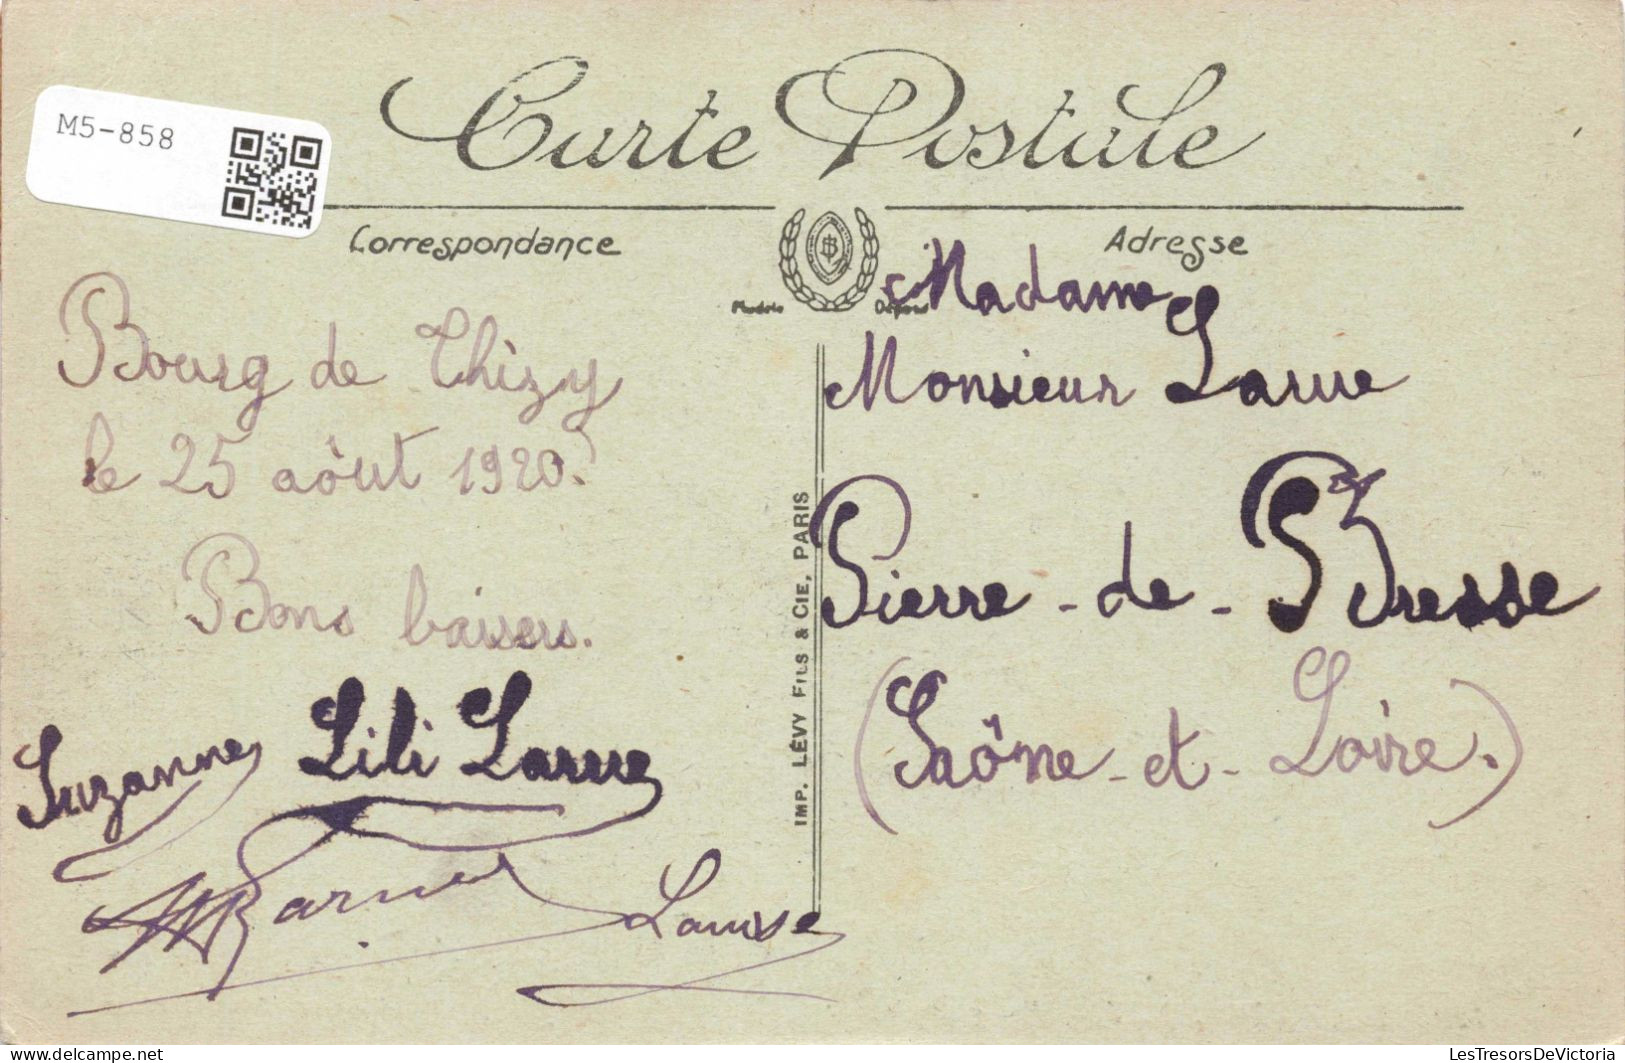 M5-858
Carte Postale
Correspondance
Adresse
Modèle Déposé
Bourg de Thizy
le 25 aòut 1920.
Bons baisers.
Suzanne Lili Larue
Louise
IMP. LÉVY FILS & CIE, PARIS
Madame
Monsieur Larue
Pierre-de-Bresse
(Saône-et-Loire.)
delcampe.net
LesTresorsDeVictoria